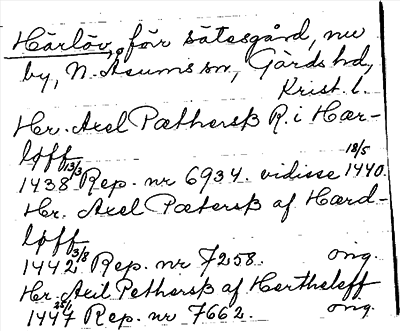 Härlöv, förr sätesgård, nu
by, N. Åsums sn, Gärds hd,
Krist. l.
Hr. Axel Pæthersß R. i Hær-
løff
1438 13/3 Rep. nr 6934. vidisse 18/5 1440.
Hr. Axel Pætersß af Hærd-
løff
1442 3/8 Rep. nr 7258. orig.
Hr. Axil Pethersß af Hertheleff
1447 25/1 Rep. nr 7662. orig.